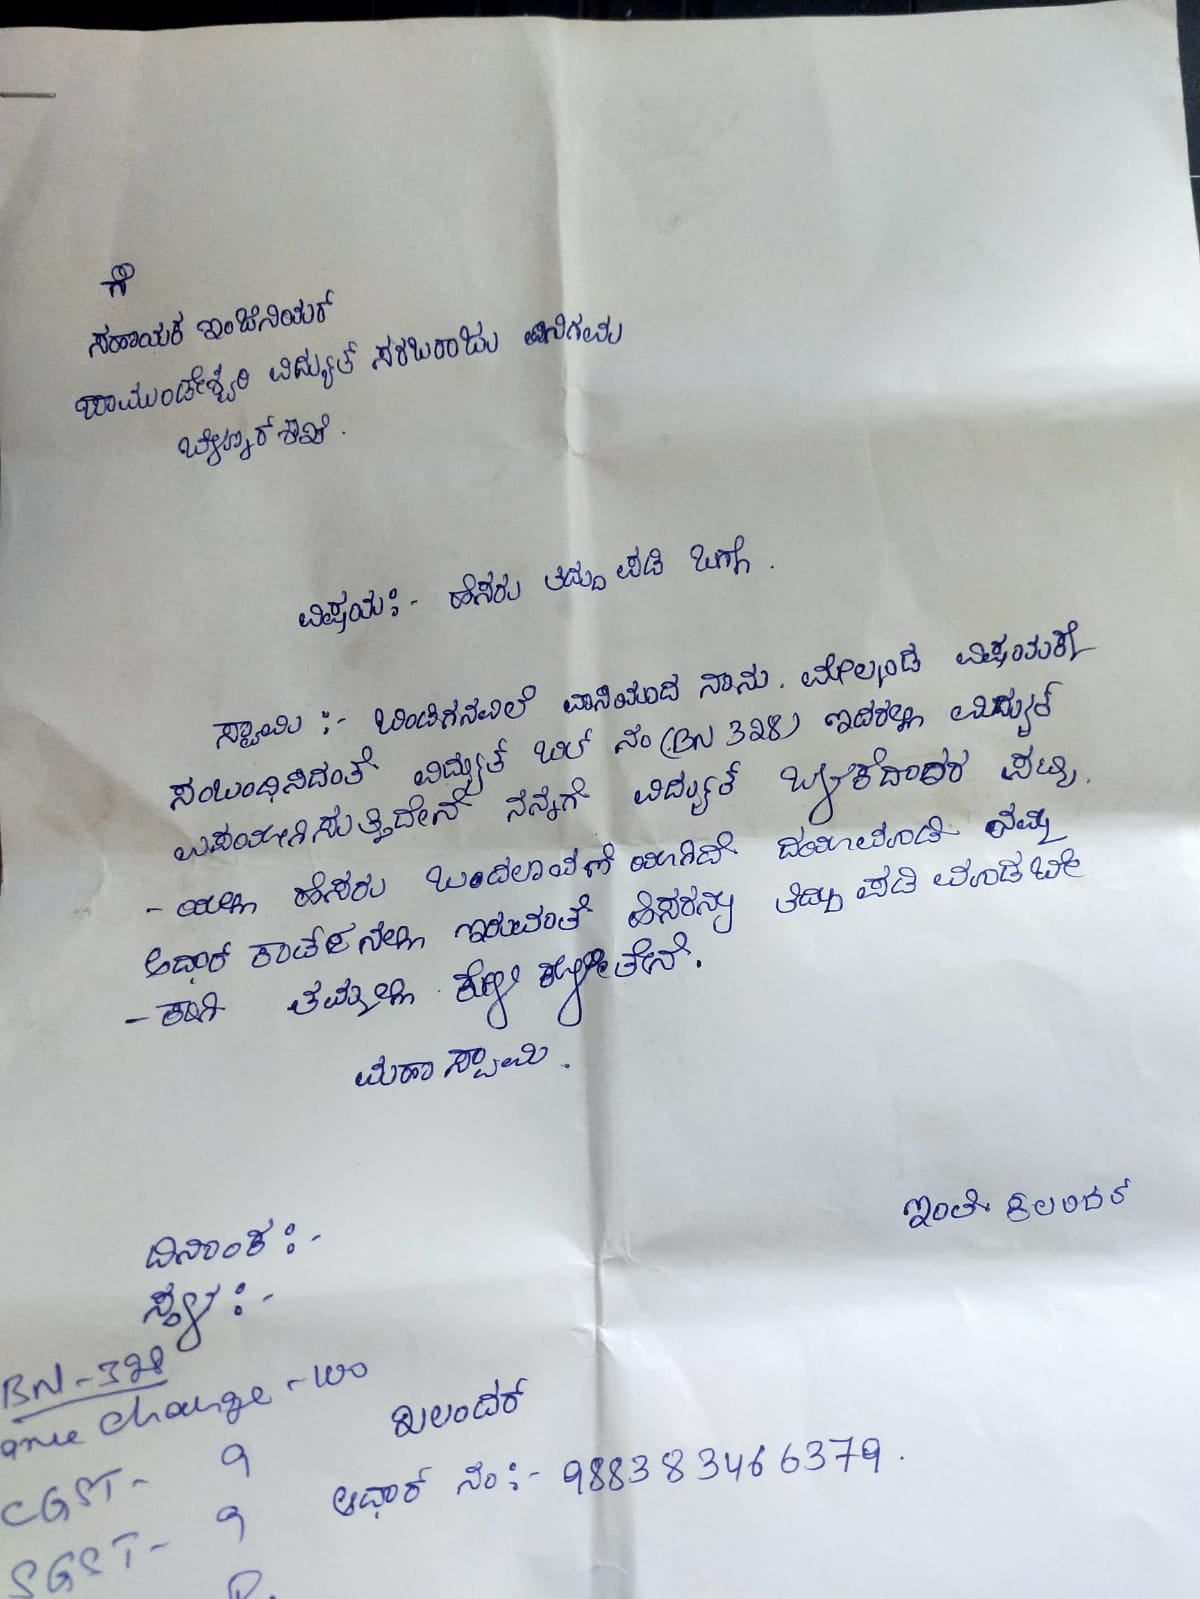 ಗೆ
ಸಹಾಯಕ ಇಂಜಿನಿಯರ್
ಚಾಮುಂಡೇಶ್ವರಿ ವಿದ್ಯುತ್ ಸರಬರಾಜು ನಿಗಮ
ಶಾಖೆ.
ವಿಷಯ:- ಹೆಸರು ತಿದ್ದುಪಡಿ ಬಗ್ಗೆ.
ಸ್ವಾಮಿ :- ಬಿಂಡಿಗನವಿಲೆ ವಾಸಿಯಾದ ನಾನು. ಮೇಲ್ಕಂಡ ವಿಷಯಕ್ಕೆ
ಸಂಬಂಧಿಸಿದಂತೆ ವಿದ್ಯುತ್ ಬಿಲ್ ನಂ (BN 328) ಇದರಲ್ಲಿ ವಿದ್ಯುತ್
ಉಪಯೋಗಿಸುತ್ತಿದೇನೆ ನನ್ನಗೆ ವಿದ್ಯುತ್ ಪಟ್ಟಿ.
- ಯಲ್ಲಿ ಹೆಸರು ಬಂದಲಾವಣೆ ಯಾಗಿದೆ ದಯಮಾಡಿ ನಮ್ಮ
ಆಧಾರ್ ಕಾರ್ಡ್‌ನಲ್ಲಿ ಇರುವಂತೆ ಹೆಸರನ್ನು ತಿದ್ದುಪಡಿ ಮಾಡಬೇ
- ಕಾಗಿ ತಮ್ಮಲ್ಲಿ ಕೇಳಿ ಕೊಳ್ಳುತೇನೆ.
ಮಹಾಸ್ವಾಮಿ.
ಇಂತಿ ಕಲಂದರ್
ದಿನಾಂಕ :-
ಸ್ಥಳ :-
BN-328
ame change - 100
CGST- 9
SGST- 9
ಖಲಂದರ್
ಆಧಾರ್ ನಂ:- 988383466379.